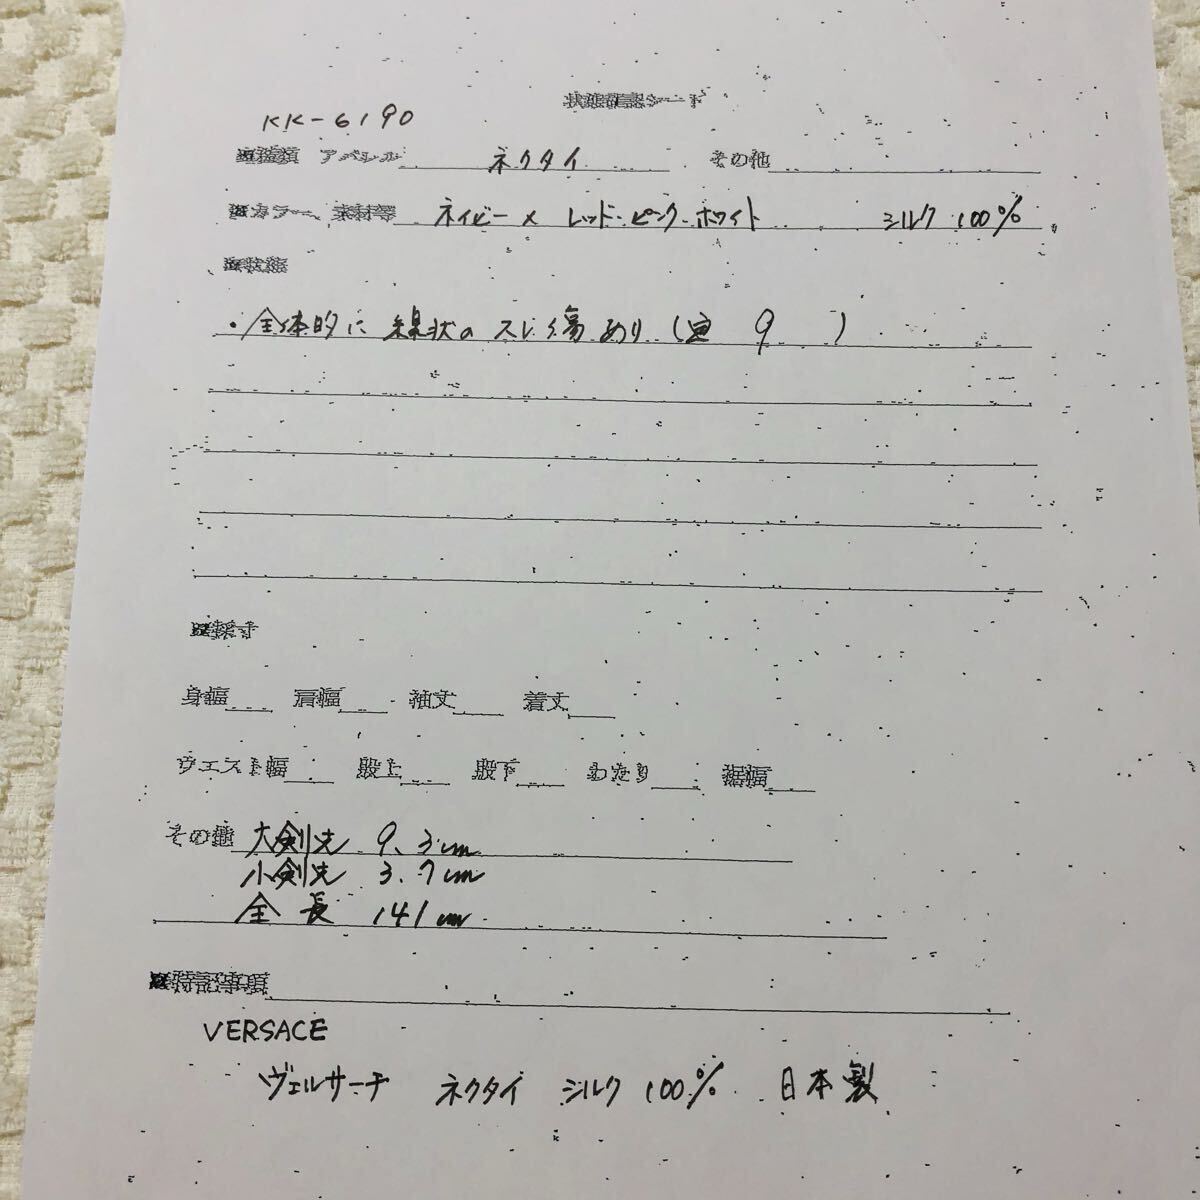 状態確認シート
KK-6190
■種類 アパレル ネクタイ その他
■カラー、素材等 ネイビー × レッド・ピンク・ホワイト シルク 100%
■状態
・全体的に 線状の スレ 傷 あり (画 9 )
■採寸
身幅 肩幅 袖丈 着丈
ウエスト幅 股上 股下 わたり 裾幅
その他 大剣先 9.3cm
小剣先 3.7cm
全長 141cm
■特記事項
VERSACE
ヴェルサーチ ネクタイ シルク 100% 日本製